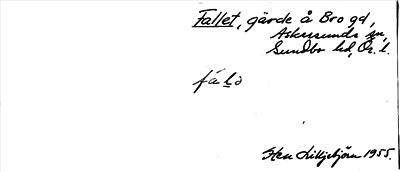 Fallet, gärde å Bro gd,
Askersunds sn,
Sundbo hd, Ör. l.
fáḷɔ
Sten Lilljebjörn 1955.